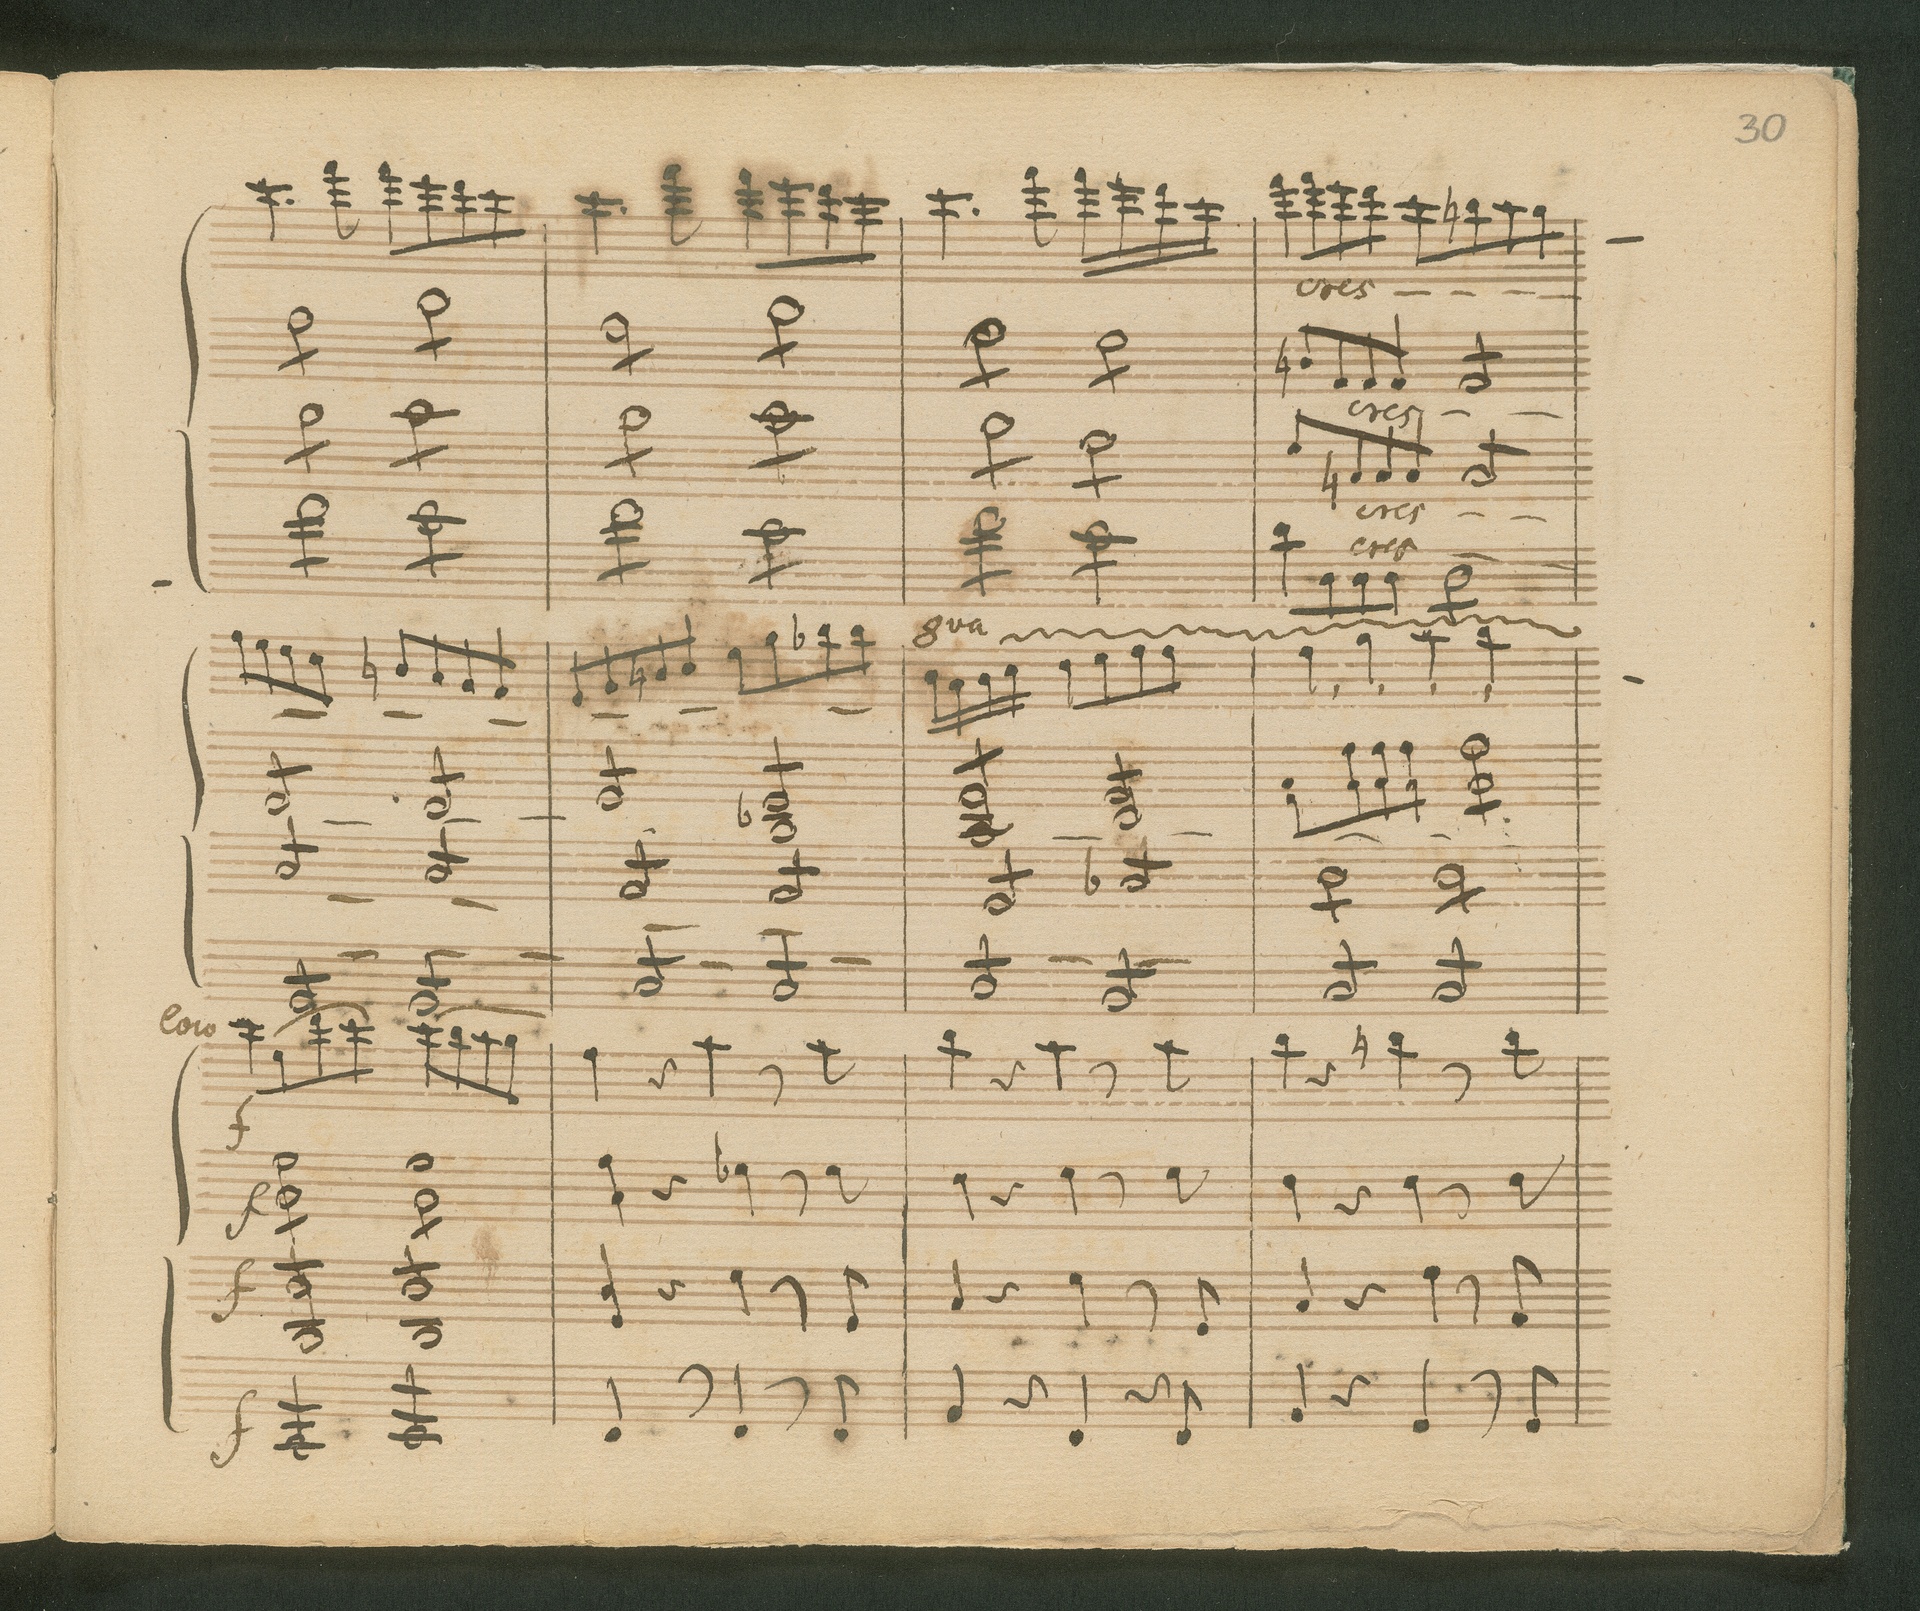 30
cres
cres
cres
cres
8va
loco
f
f
f
f